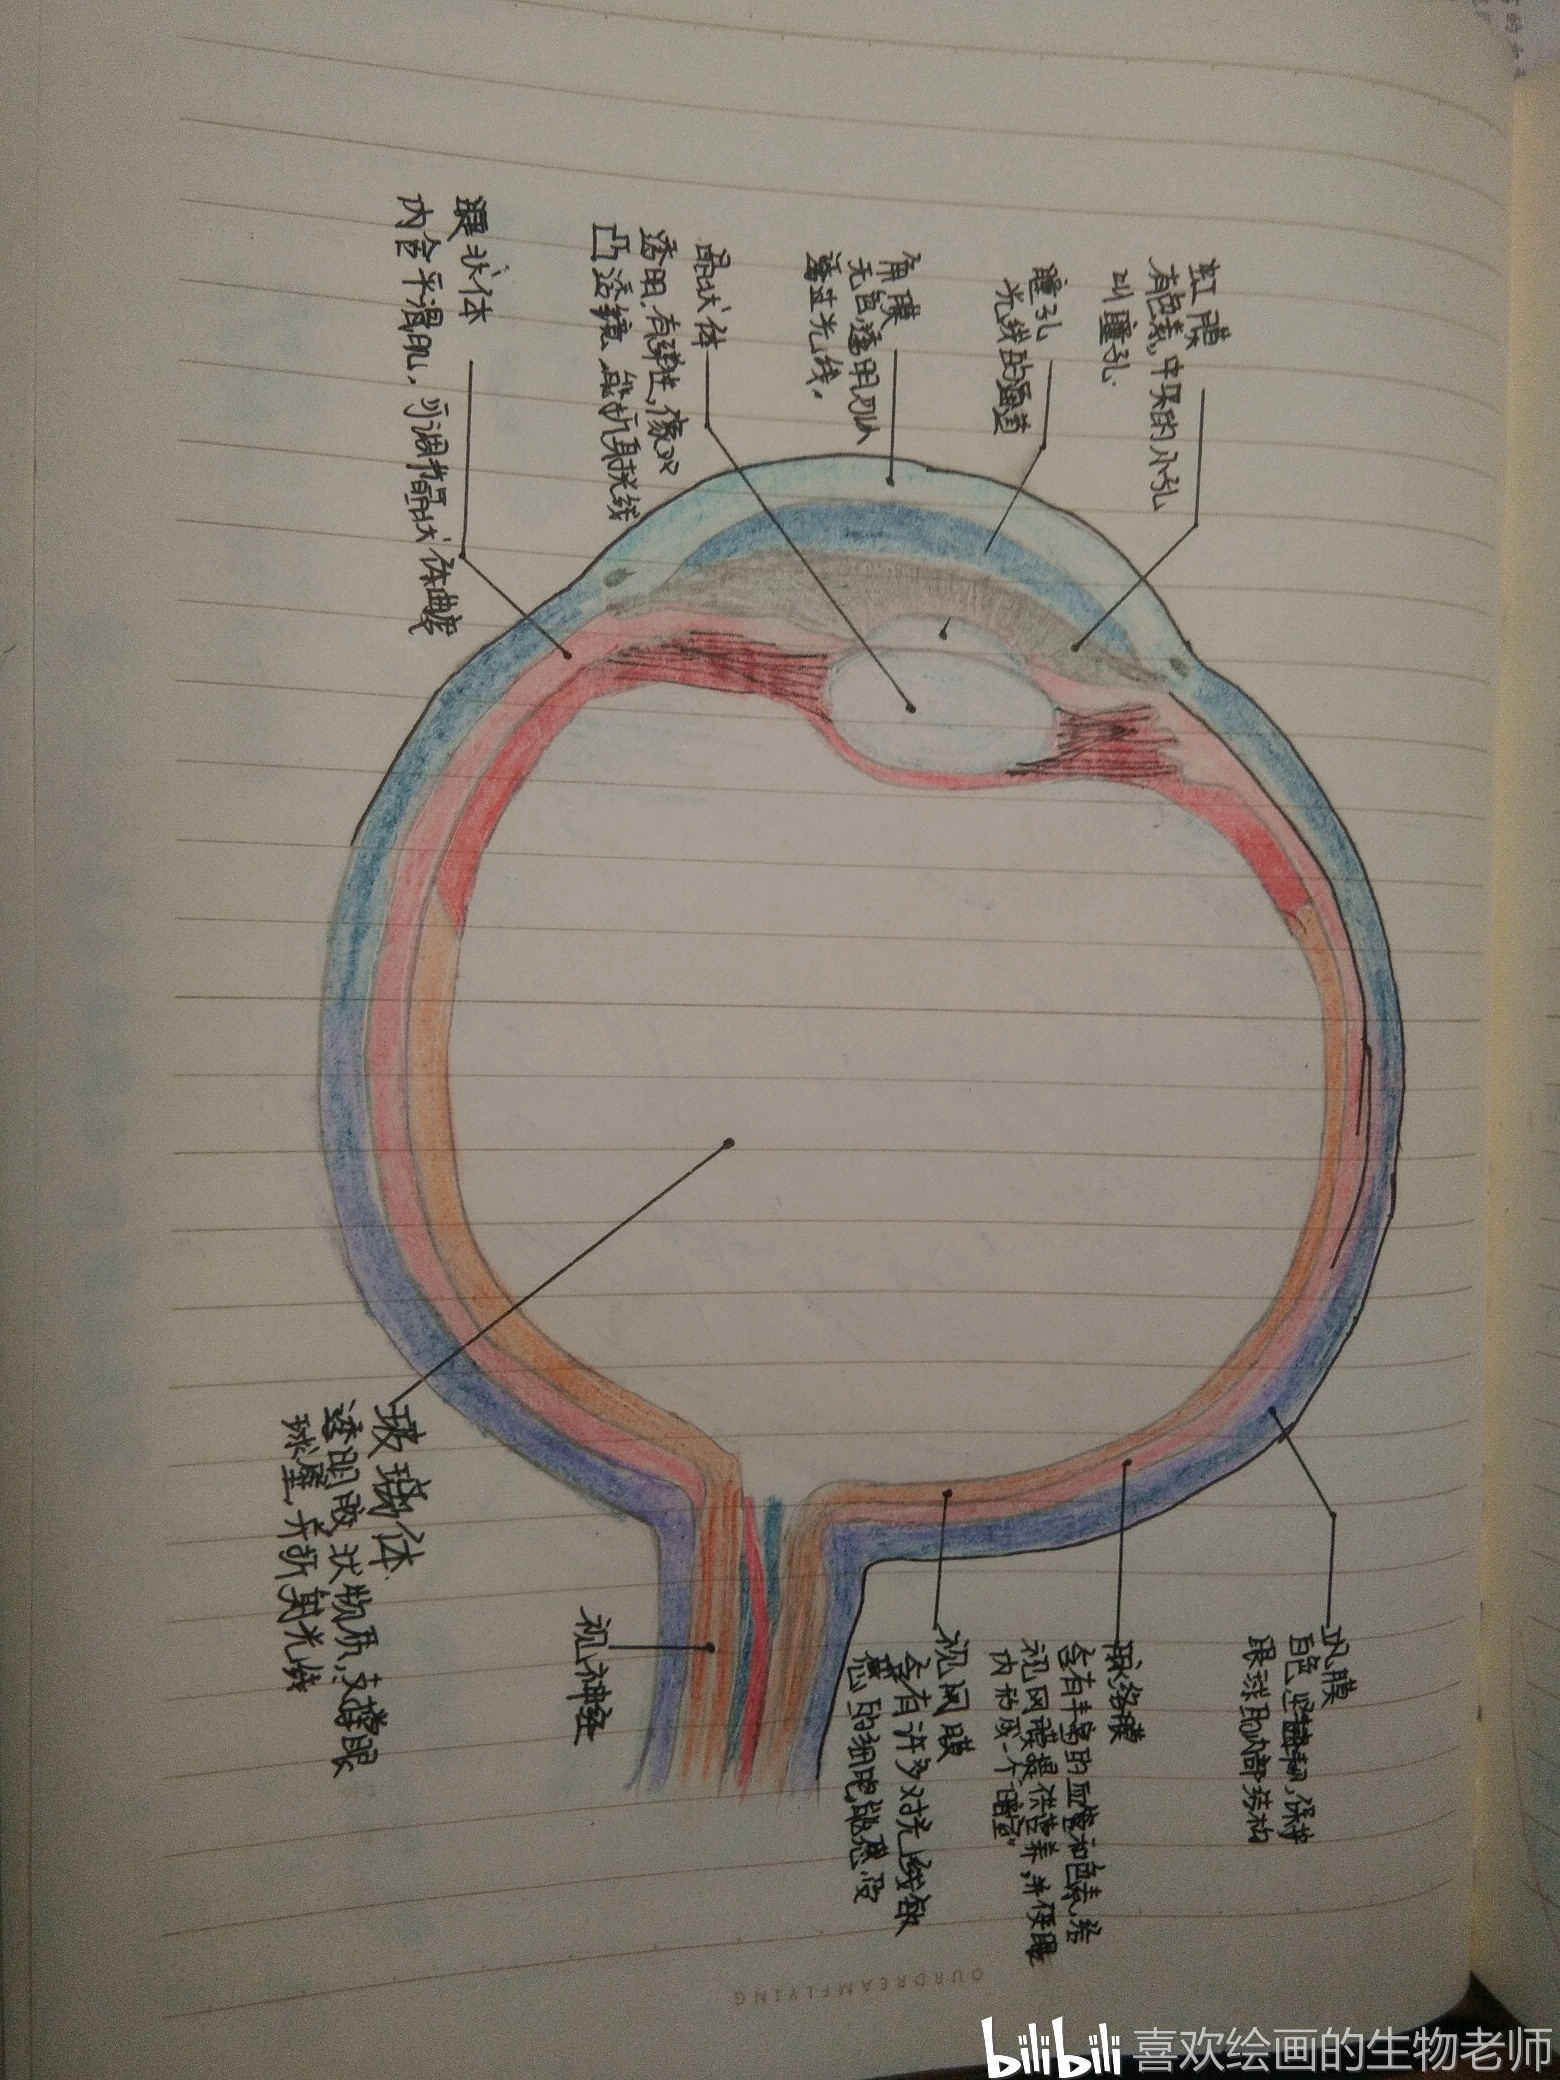 虹膜
有色素,中央的小孔
叫瞳孔.
瞳孔
光线的通道
角膜
无色,透明,可以
透过光线.
晶状体
透明,有弹性,像双
凸透镜,能折射光线
睫状体
内含平滑肌,可调节晶状体曲度
巩膜
白色,坚韧,保护
眼球的内部结构
脉络膜
含有丰富的血管和色素,给
视网膜提供营养,并使眼
内形成一个"暗室"
视网膜
含有许多对光线敏
感的细胞,能感受
视神经
玻璃体
透明胶状物质,支撑眼
球壁,并折射光线
OURDREAMFLYING
bilibili 喜欢绘画的生物老师